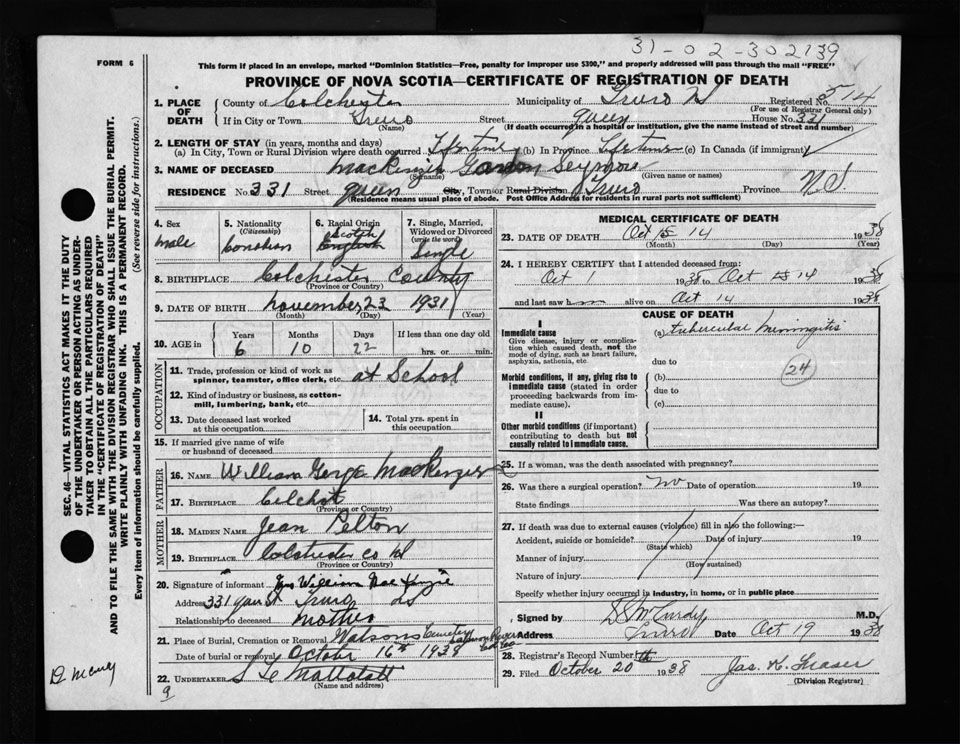 31-02-302139
FORM 6
This form if placed in an envelope, marked "Dominion Statistics—Free, penalty for improper use $300," and properly addressed will pass through the mail "FREE"
PROVINCE OF NOVA SCOTIA—CERTIFICATE OF REGISTRATION OF DEATH
1. PLACE OF DEATH
County of Colchester Municipality of Truro Registered No. 514
(For use of Registrar General only)
If in City or Town Truro Street queen House No. 331
(Name) (If death occurred in a hospital or institution, give the name instead of street and number)
2. LENGTH OF STAY (in years, months and days)
(a) In City, Town or Rural Division where death occurred Lifetime (b) In Province Lifetime (c) In Canada (if immigrant)
3. NAME OF DECEASED MacKenzie Gordon Seymore
(Surname) (Given name or names)
RESIDENCE No. 331 Street queen City, Town or Rural Division Truro Province N.S.
(Residence means usual place of abode. Post Office Address for residents in rural parts not sufficient)
4. Sex
male
5. Nationality
(Citizenship)
Canadian
6. Racial Origin
Scotch
English
7. Single, Married, Widowed or Divorced
(write the word)
Single
8. BIRTHPLACE Colchester County
(Province or Country)
9. DATE OF BIRTH November, 23 1931
(Month) (Day) (Year)
10. AGE in
Years Months Days If less than one day old
6 10 22 hrs. or min.
OCCUPATION
11. Trade, profession or kind of work as spinner, teamster, office clerk, etc. at School
12. Kind of industry or business, as cotton-mill, lumbering, bank, etc.
13. Date deceased last worked at this occupation
14. Total yrs. spent in this occupation
15. If married give name of wife or husband of deceased
FATHER
16. NAME William George MacKenzie
17. BIRTHPLACE
(Province or Country)
MOTHER
18. MAIDEN NAME Jean Pelton
19. BIRTHPLACE
(Province or Country)
20. Signature of informant William MacKenzie
Address 331 Queen St Truro NS
Relationship to deceased mother
21. Place of Burial, Cremation or Removal Watsons Cemetery
Date of burial or removal October 16th 1938
22. UNDERTAKER
(Name and address)
9
MEDICAL CERTIFICATE OF DEATH
23. DATE OF DEATH Oct 14 1938
(Month) (Day) (Year)
24. I HEREBY CERTIFY that I attended deceased from:
Oct 1 1938 to Oct 14 1938
and last saw him alive on Oct 14 1938
CAUSE OF DEATH
I
Immediate cause
Give disease, injury or complication which caused death, not the mode of dying, such as heart failure, asphyxia, asthenia, etc.
(a) tubercular meningitis
due to
24
Morbid conditions, if any, giving rise to immediate cause (stated in order proceeding backwards from immediate cause).
(b)
due to
(c)
II
Other morbid conditions (if important) contributing to death but not causally related to immediate cause.
25. If a woman, was the death associated with pregnancy?
26. Was there a surgical operation? no Date of operation 19
State findings Was there an autopsy?
27. If death was due to external causes (violence) fill in also the following:—
Accident, suicide or homicide? Date of injury 19
(State which)
Manner of injury
(How sustained)
Nature of injury
Specify whether injury occurred in industry, in home, or in public place
Signed by D S McCurdy M.D.
Address Truro Date Oct 19 1938
28. Registrar's Record Number
29. Filed October 20 1938 Jas. K. Fraser
(Division Registrar)
SEC. 46—VITAL STATISTICS ACT MAKES IT THE DUTY
OF THE UNDERTAKER OR PERSON ACTING AS UNDERTAKER TO OBTAIN ALL THE PARTICULARS REQUIRED
IN THE "CERTIFICATE OF REGISTRATION OF DEATH"
AND TO FILE THE SAME WITH THE DIVISION REGISTRAR WHO SHALL ISSUE THE BURIAL PERMIT.
WRITE PLAINLY WITH UNFADING INK. THIS IS A PERMANENT RECORD.
Every item of information should be carefully supplied. (See reverse side for instructions.)